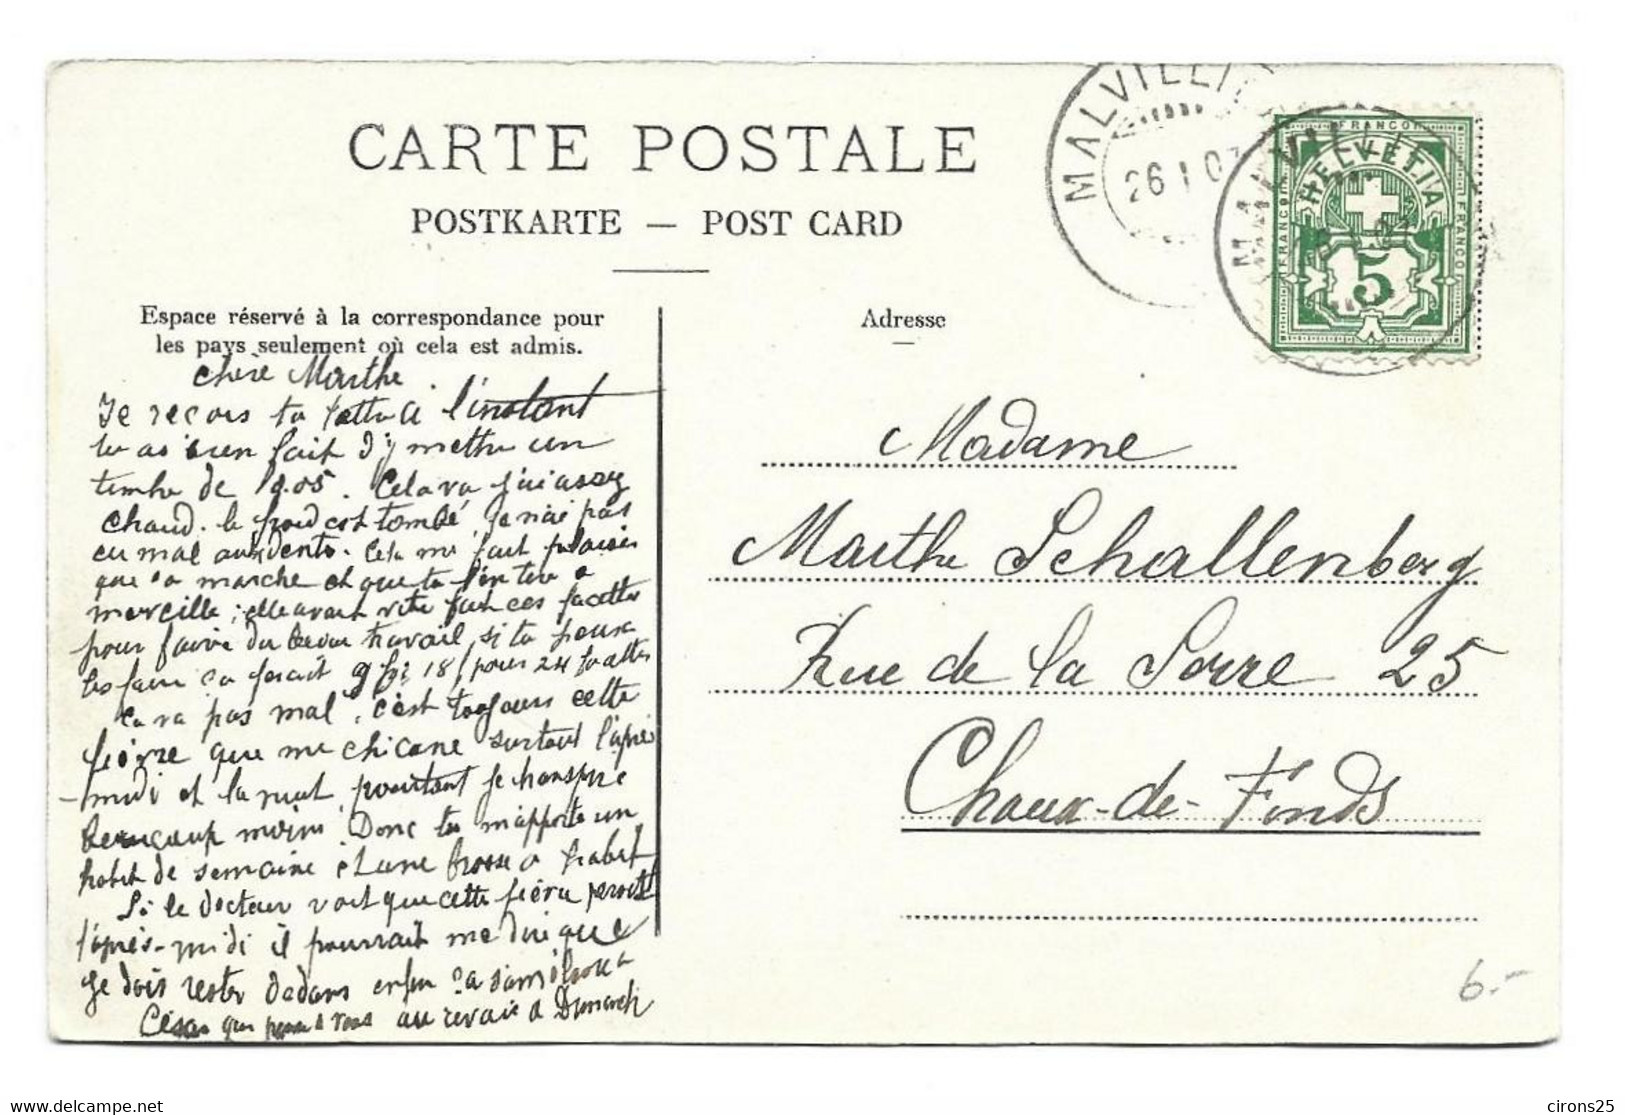 CARTE POSTALE
POSTKARTE — POST CARD
MALVILLI
26 I 07
MALVILL
FRANCO
HELVETIA
FRANCO
FRANCO
5
Espace réservé à la correspondance pour
les pays seulement où cela est admis.
Adresse
chère Marthe.
Je reçois ta lettre à l'instant
tu as bien fait d'y mettre un
timbre de 0.05. Cela va j'ai assez
chaud. le froid est tombé, je n'ai pas
eu mal aux dents. Cela me fait plaisir
que ça marche et que tu
merveille; elle avait vite fait ces facettes
pour faire du beau travail, si tu peux
les faire ça ferait 9 fr. 18 pour 24
Ca va pas mal, c'est toujours cette
fièvre que me chicane surtout l'après
-midi et la nuit, pourtant je transpire
beaucoup moins. Donc tu m'apporte un
habit de semaine et une brosse à habit
Si le docteur voit que cette fièvre persiste
l'après-midi il pourrait me dire que
je dois rester dedans enfin ça
César que pense à vous au revoir à Dimanche
Madame
Marthe Schallenberg
Rue de la Serre 25
Chaux-de-Fonds
6.-
www.delcampe.net
cirons25